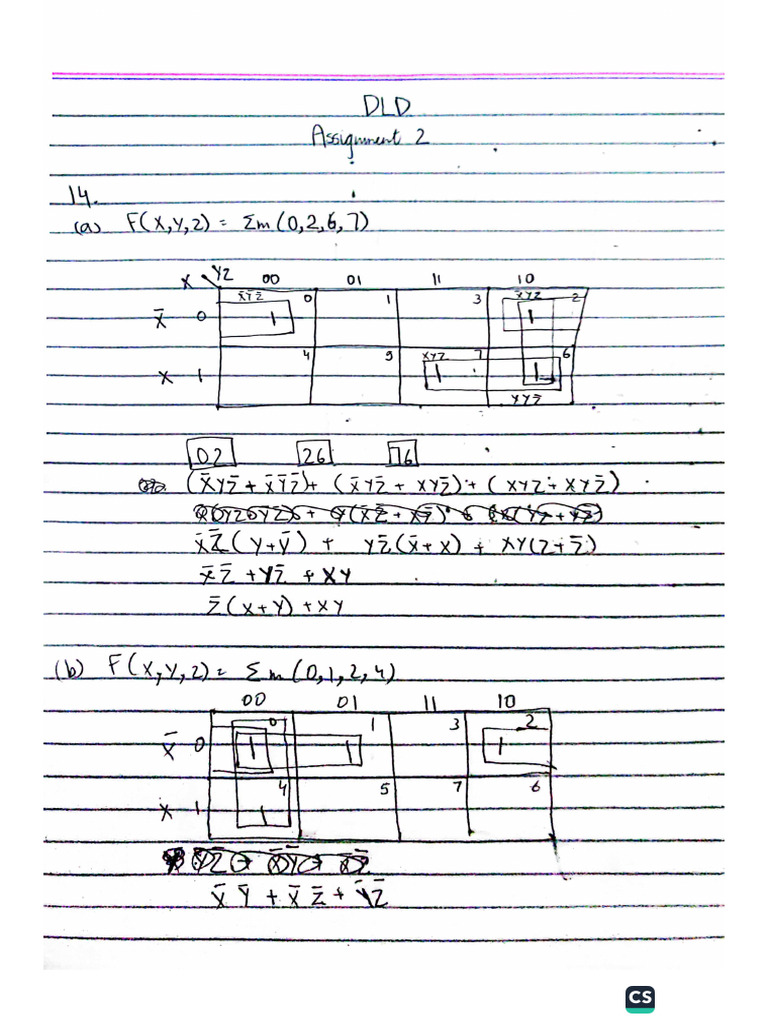 DLD
Assignment 2
14.
(a) F(X,Y,Z) = Σm(0,2,6,7)
X YZ 00 01 11 10
X̄ 0 X̄ȲZ̄ 0 1 1 3 X̄YZ̄ 2 1
X 1 4 5 XYZ 7 1 6 1
XYZ̄
02 26 76
(X̄YZ̄ + X̄ȲZ̄) + (X̄YZ̄ + XYZ̄) + (XYZ + XYZ̄)
X̄Z̄(Y+Ȳ) + YZ̄(X̄+X) + XY(Z+Z̄)
X̄Z̄ + YZ̄ + XY
Z̄(X+Y) + XY
(b) F(X,Y,Z) = Σm(0,1,2,4)
00 01 11 10
X̄ 0 0 1 1 1 3 2 1
X 1 4 1 5 7 6
X̄Ȳ + X̄Z̄ + ȲZ̄
CS